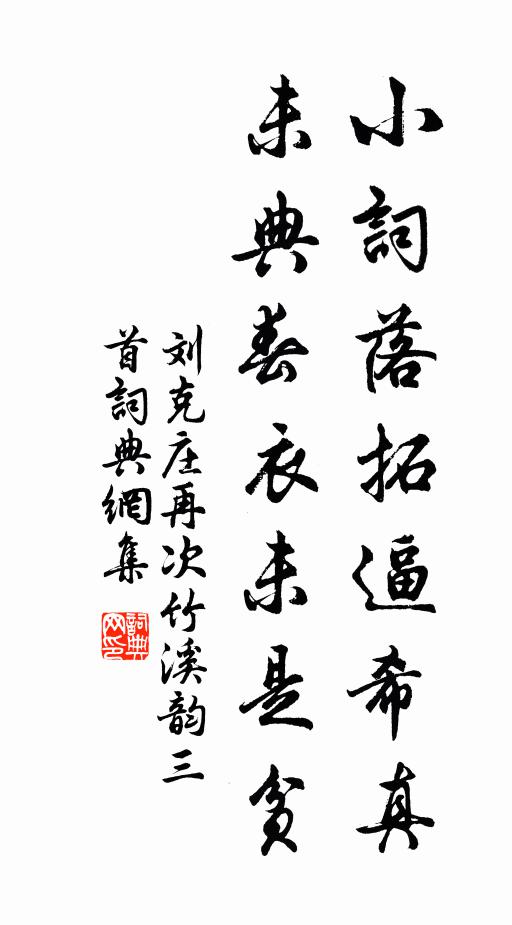 小詞落拓逼希真
未典春衣未是貧
刘克庄再次竹溪韵三
首詞典網集
詞典网印